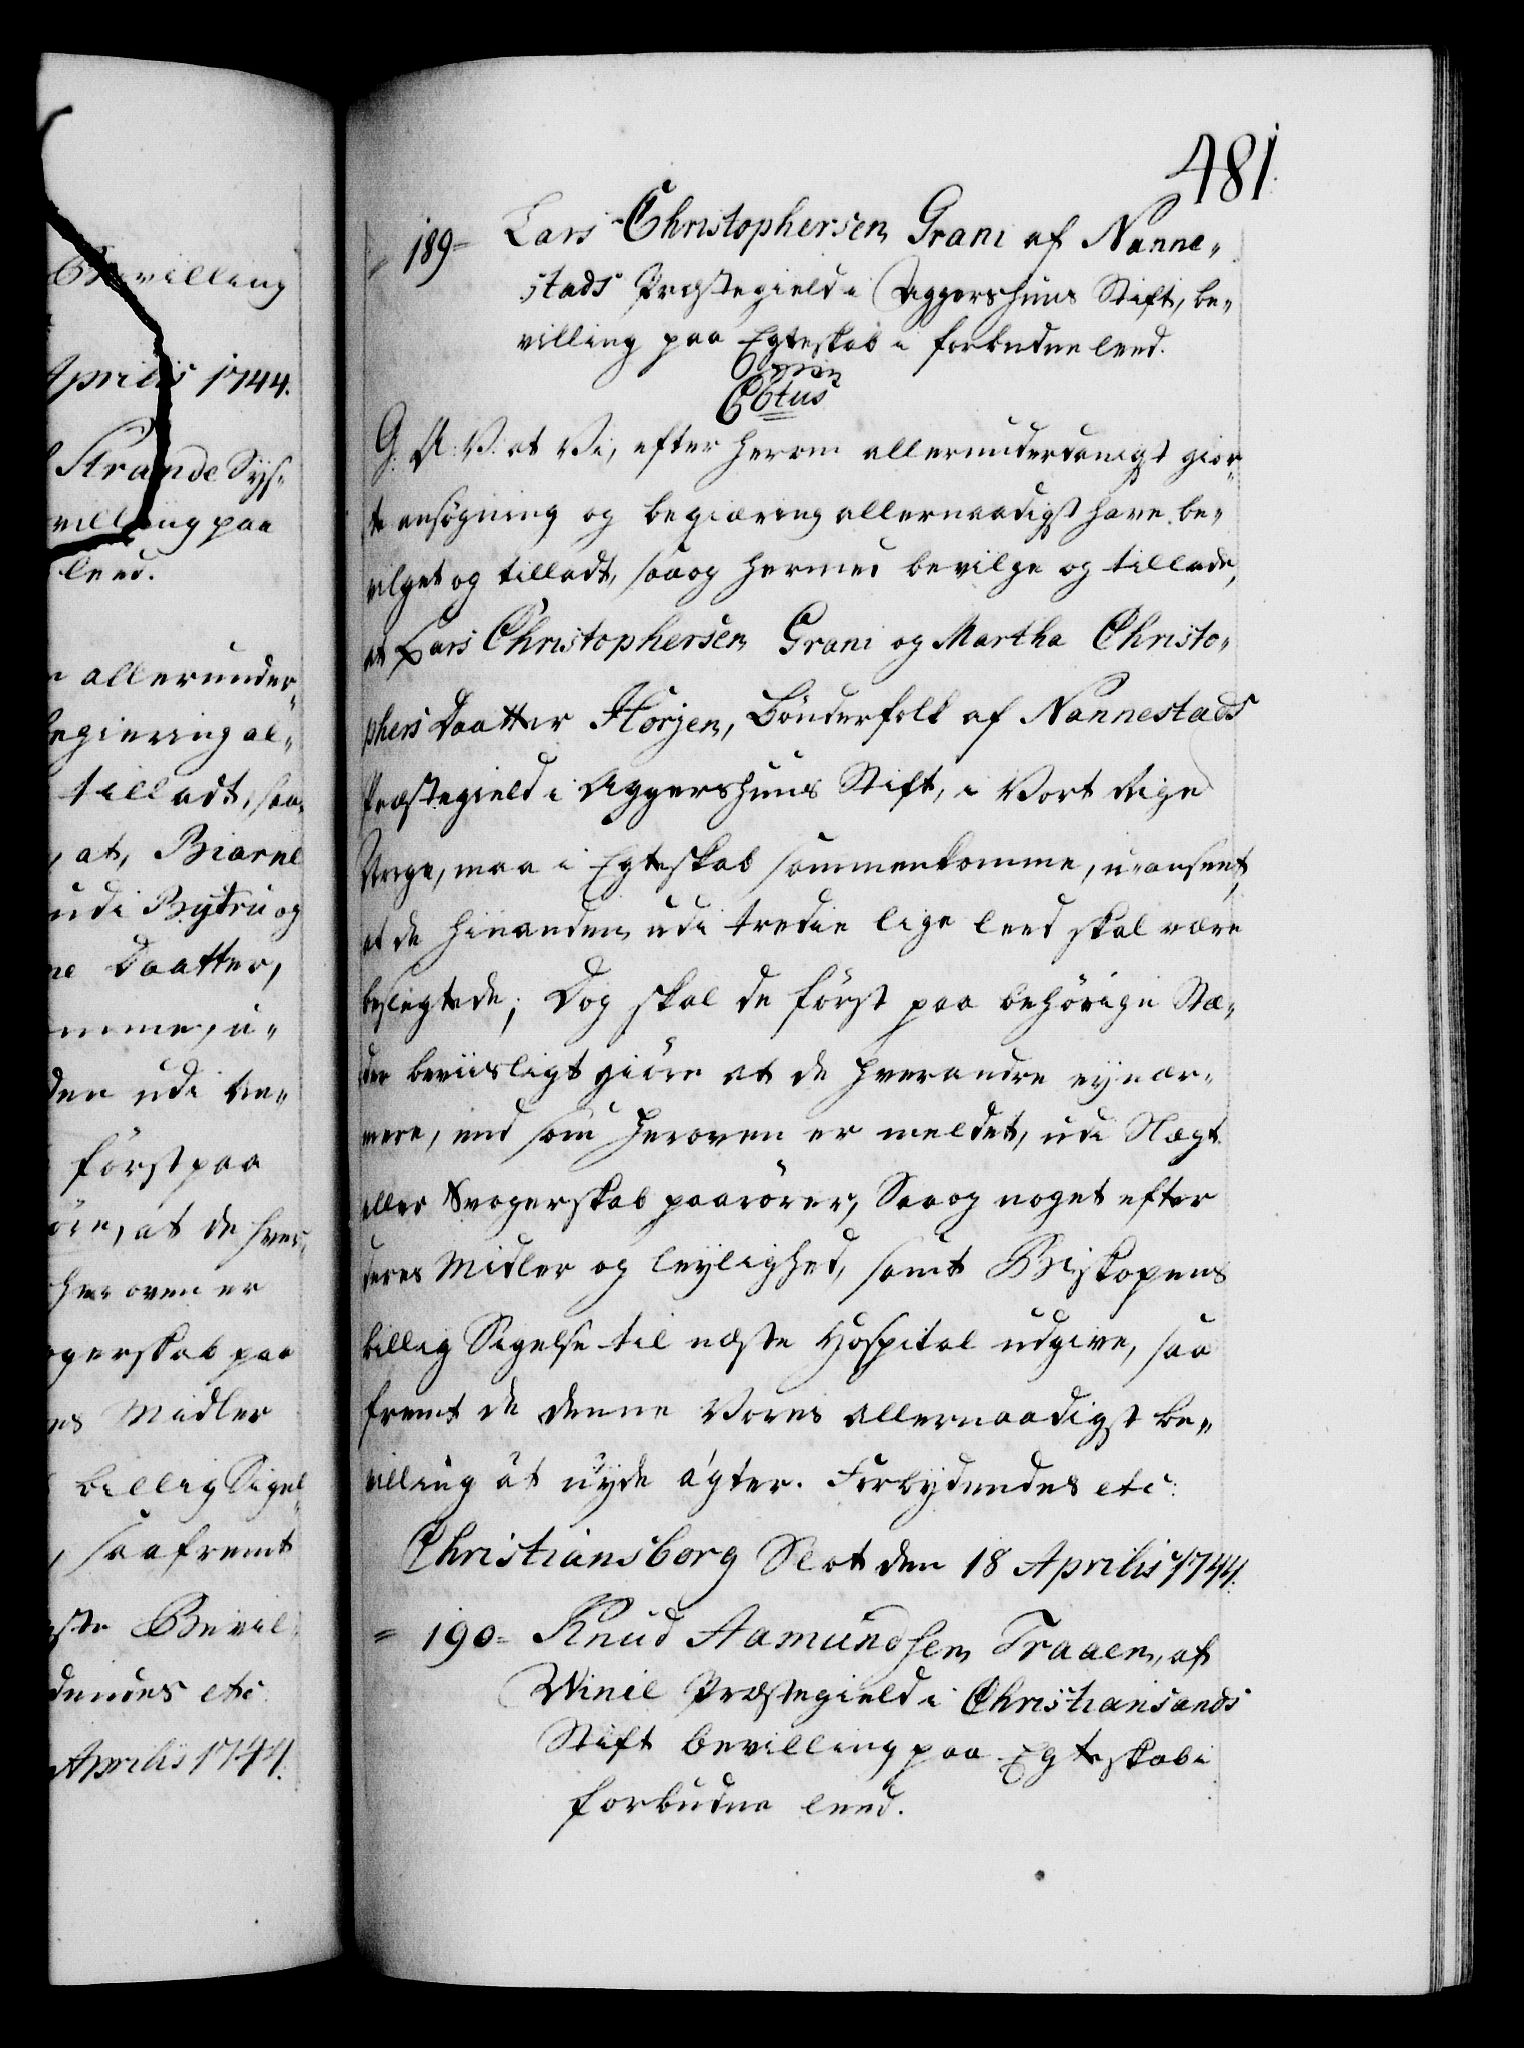 Bevilling
Aprilis 1744.
Strande Sys-
villing paa
leed.
allerunder-
begiering al-
tilladt, saa-
, at, Biarne
udi Bytru og
Daatter,
komme, u-
den udi
först paa
giöre, at de hver-
heroven er
ogerskab paa
Midler
billig Sigel-
, saafremt
Bevil-
dendes etc
Aprilis 1744.
481.
189 = Lars Christophersen Grani af Nanne-
stads Præstegield i Aggershuus Stift, be-
villing paa Egteskab i forbudne leed.
G. A. V. at Vi, efter herom allerunderdanigst gior-
te ansögning og begiæring allernaadigst have be-
vilget og tilladt, saa og hermed bevilge og tillade,
at Lars Christophersen Grani og Martha Christo-
phers Daatter Horjen, Bönderfolk af Nannestads
Præstegield i Aggershuus Stift, i Vort Rige
Norge, maa i Egteskab sammenkomme, u-anseet,
at de hinanden udi tredie lige leed skal være
beslegtede; Dog skal de först paa behörige Stæ-
der beviisligt giöre at de hverandre ey nær-
mere, end som heroven er meldet, udi Slægt
eller Svogerskab paarörer, Saa og noget efter
deres Midler og leylighed, samt Biskopens
billig Sigelse til næste Hospital udgive, saa
fremt de denne Vores allernaadigst be-
villing at nyde agter. Forbydendes etc:
Christiansborg Slot den 18 Aprilis 1744.
= 190 = Knud Aamundsen Traaen, af
Winie Præstegield i Christiansands
Stift bevilling paa Egteskab i
forbudne leed.